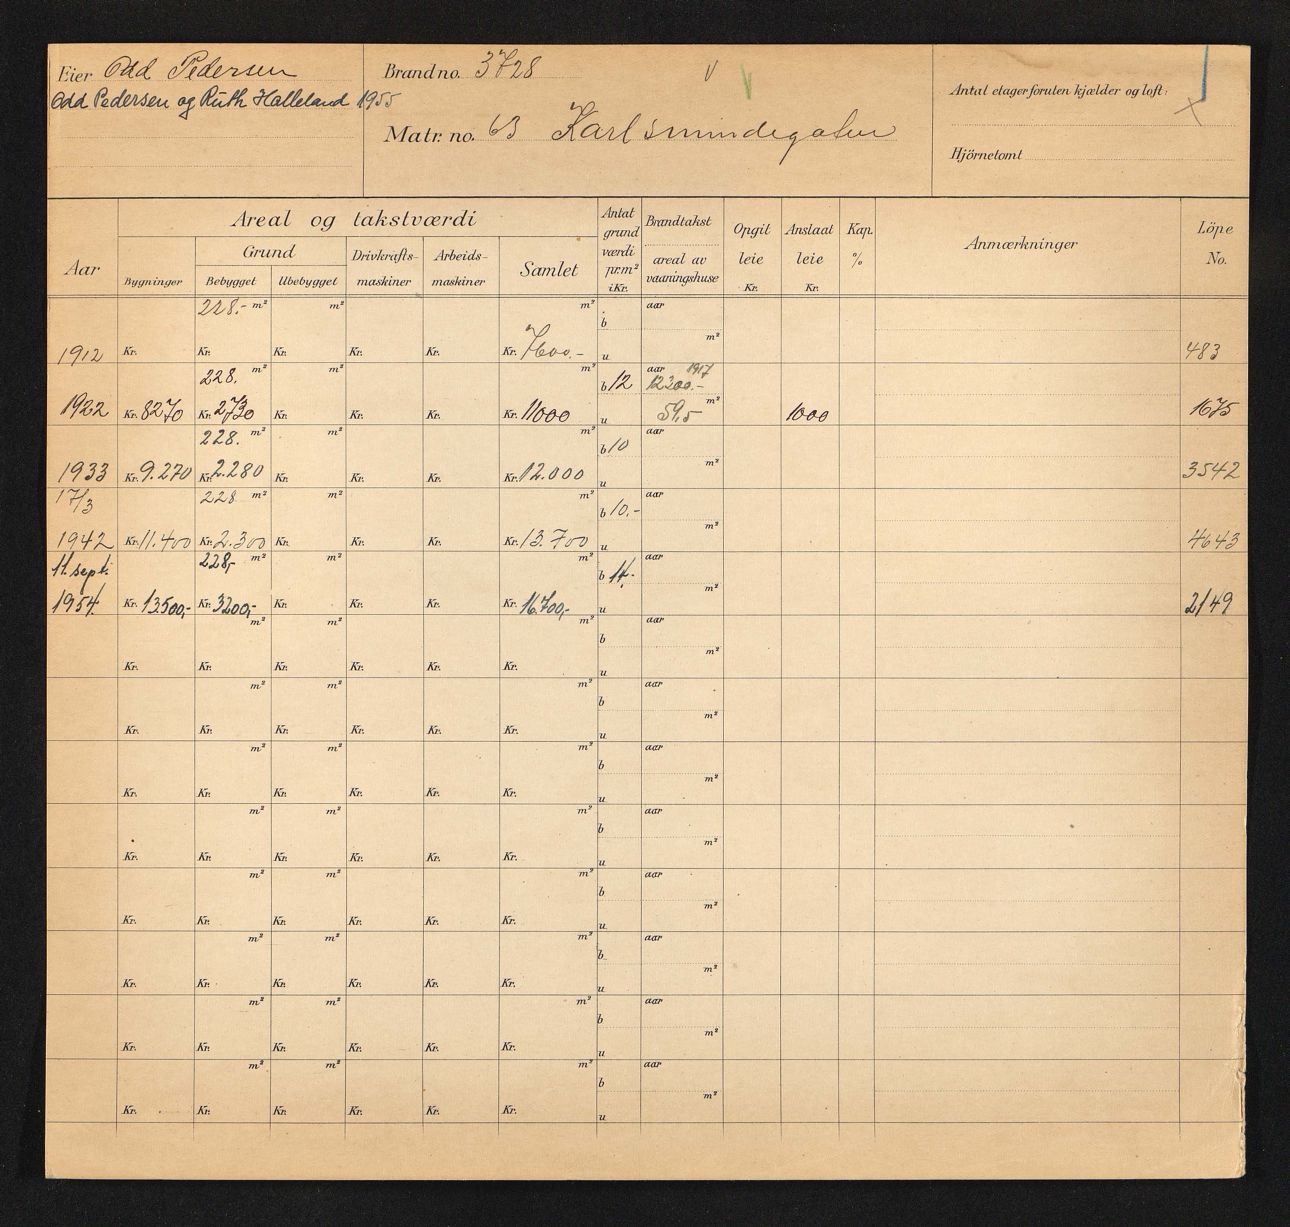 Eier Odd Pedersen
Odd Pedersen og Ruth Halleland 1955
Brand no. 3728
Matr. no. 63 Karlsmindegaten
Antal etager foruten kjælder og loft:
Hjörnetomt
Aar
Areal og takstværdi
Bygninger
Grund
Bebygget
Ubebygget
Drivkrafts-
maskiner
Arbeids-
maskiner
Samlet
Antat
grund
værdi
pr. m²
i Kr.
Brandtakst
areal av
vaaningshuse
Opgit
leie
Kr.
Anslaat
leie
Kr.
Kap.
%
Anmærkninger
Löpe
No.
228.- m² m² m² b aar
1912 Kr. Kr. Kr. Kr. Kr. Kr. 7600.- u m² 483
228. m² m² m² b 12 aar 1917 12200.-
1922 Kr. 8270 Kr. 2730 Kr. Kr. Kr. Kr. 11000 u 59,5 m² 1000 1675
228. m² m² m² b 10 aar
1933 Kr. 9.270 Kr. 2.280 Kr. Kr. Kr. Kr. 12.000 u m² 3542
17/3 228 m² m² m² b 10.- aar
1942 Kr. 11.400 Kr. 2.300 Kr. Kr. Kr. Kr. 13.700 u m² 4643
11. sept. 228,- m² m² m² b 14.- aar
1954. Kr. 13500,- Kr. 3200,- Kr. Kr. Kr. Kr. 16.700,- u m² 2149
m² m² m² b aar
Kr. Kr. Kr. Kr. Kr. Kr. u m²
m² m² m² b aar
Kr. Kr. Kr. Kr. Kr. Kr. u m²
m² m² m² b aar
Kr. Kr. Kr. Kr. Kr. Kr. u m²
m² m² m² b aar
Kr. Kr. Kr. Kr. Kr. Kr. u m²
m² m² m² b aar
Kr. Kr. Kr. Kr. Kr. Kr. u m²
m² m² m² b aar
Kr. Kr. Kr. Kr. Kr. Kr. u m²
m² m² m² b aar
Kr. Kr. Kr. Kr. Kr. Kr. u m²
m² m² m² b aar
Kr. Kr. Kr. Kr. Kr. Kr. u m²